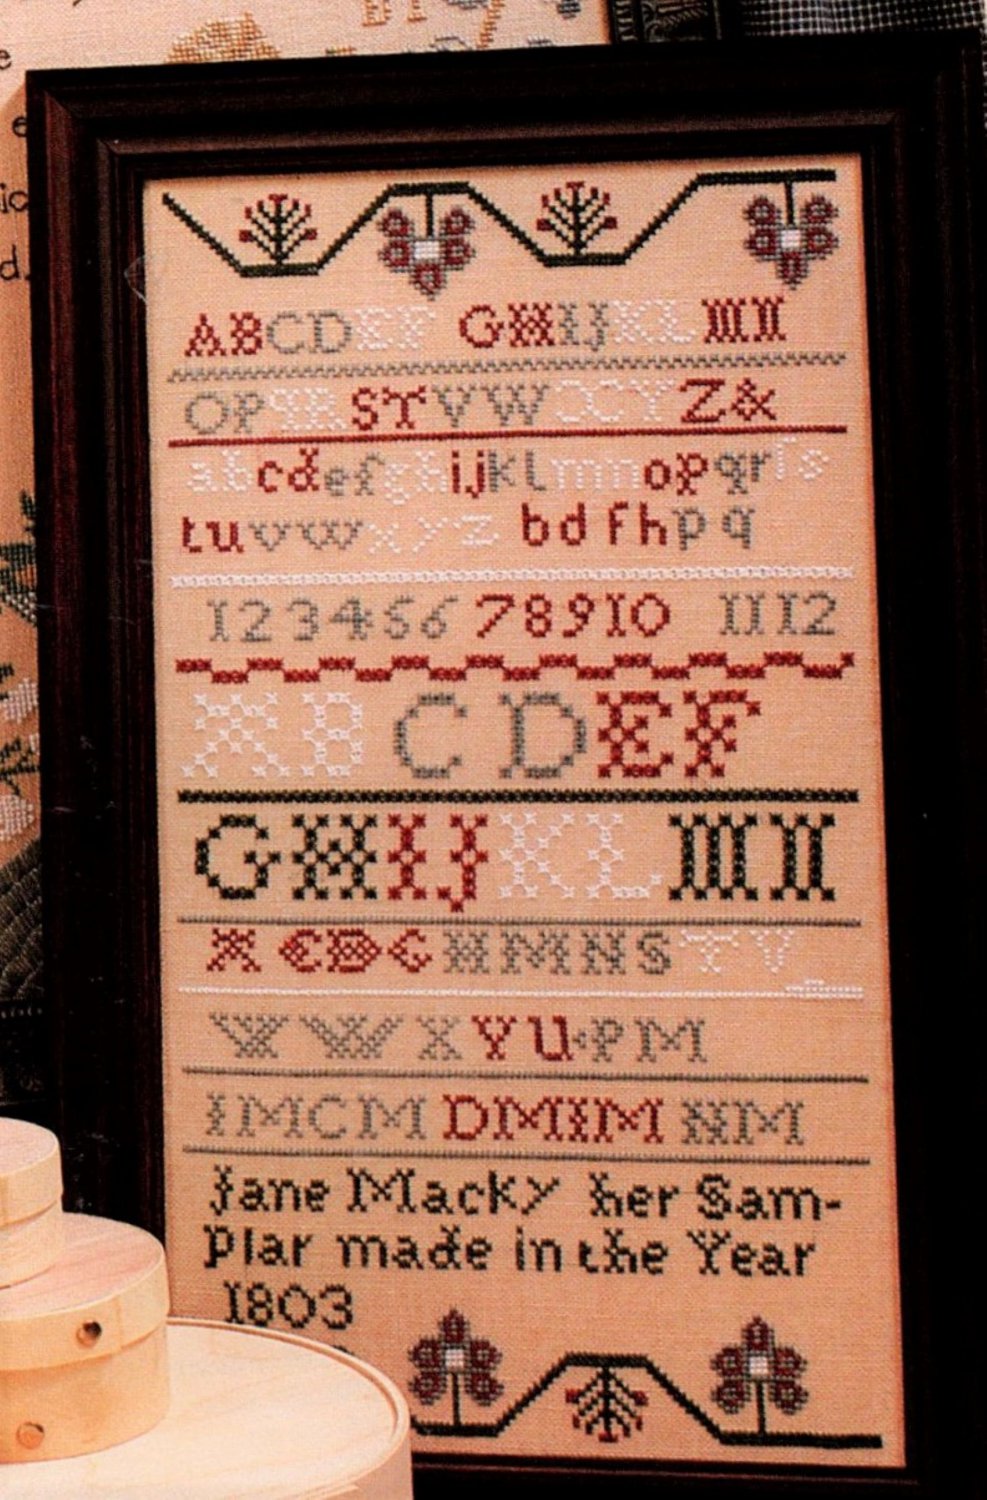 ABCDEF GHIJKLMN
OPQRSTVWXYZ&
abcdefghijklmnopqrſs
tuvwxyz bdfhpq
123456 78910 1112
AB CDEF
GHIJKLMN
A CDG HMNS TV
VWXYU PM
IMCM DMIM NM
Jane Macky her Sam-
plar made in the Year
1803